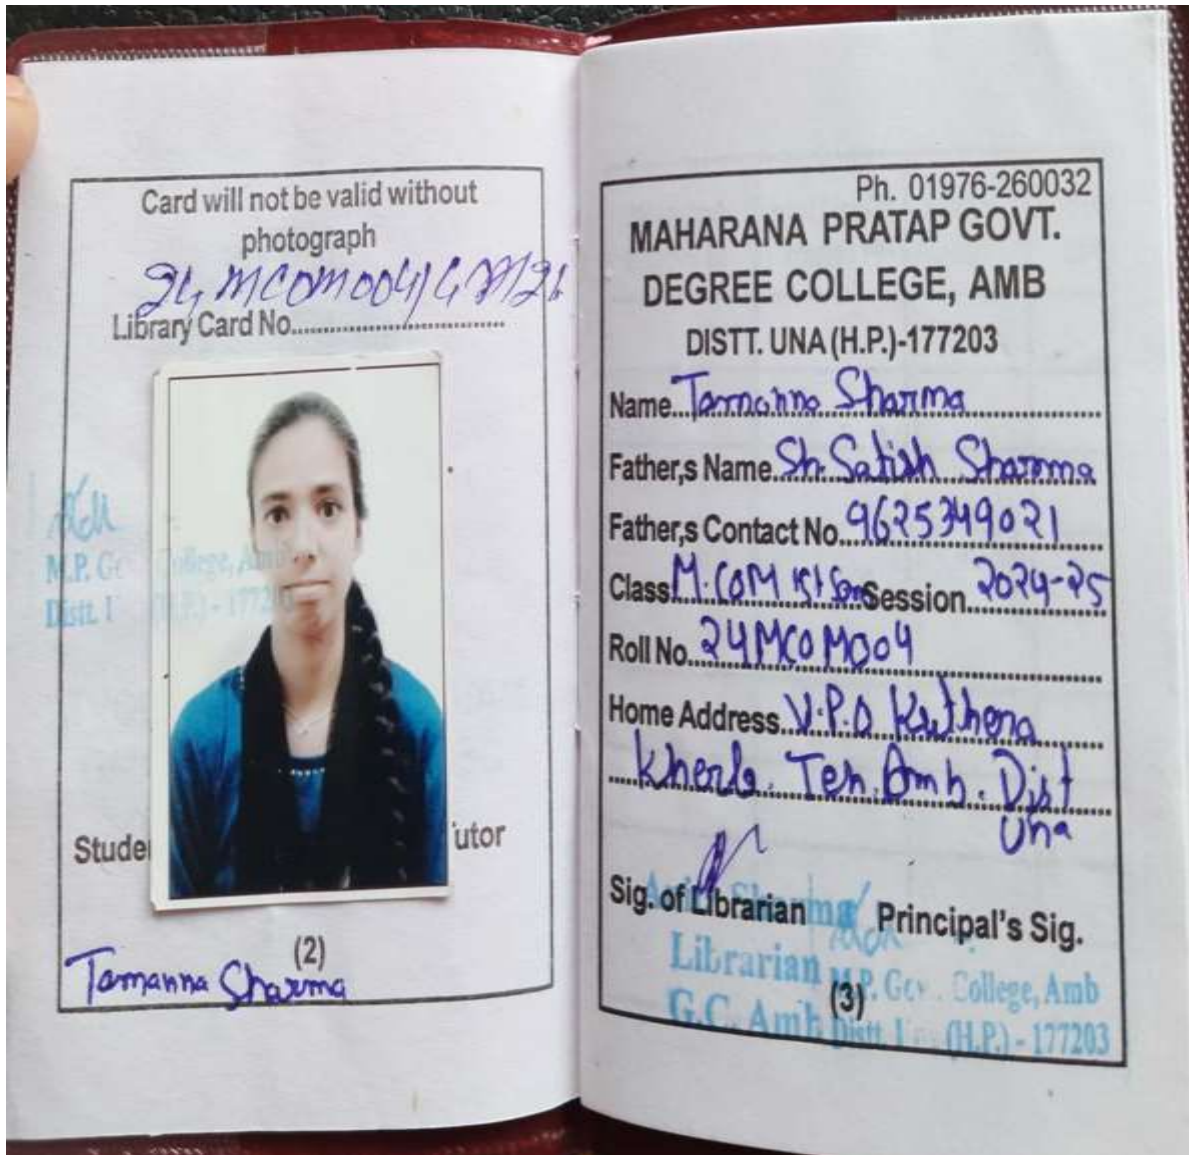 Card will not be valid without
photograph
Library Card No.
M.P. Go College, Amb
Distt. U (H.P.) - 177203
Stude utor
(2)
Tamanna Sharma
Ph. 01976-260032
MAHARANA PRATAP GOVT.
DEGREE COLLEGE, AMB
DISTT. UNA (H.P.)-177203
Name Tamanna Sharma
Father,s Name Sh. Satish Sharma
Father,s Contact No. 9625349021
Class M.COM Ist Sem Session 2024-25
Roll No. 24MCOM004
Home Address V.P.O Kuthera
Kherla. Teh. Amb. Dist
Una
Sig. of Librarian Principal's Sig.
Sharma
Librarian
G.C. Amb
M.P. Gov. College, Amb
(3)
Distt. Un (H.P.) - 177203